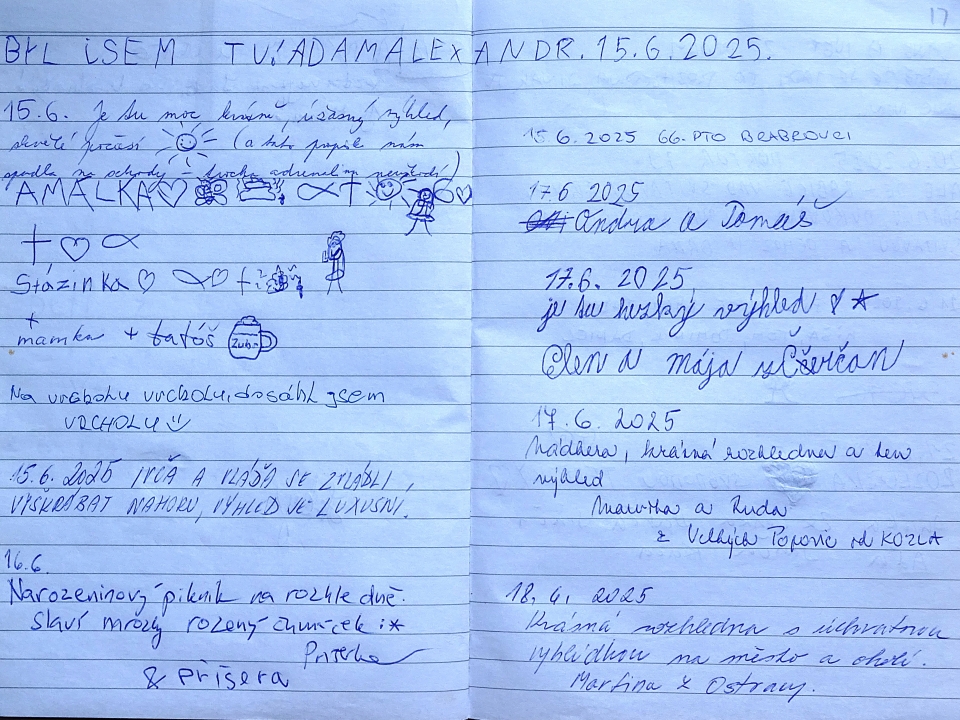 BYL JSEM TU! ADAM ALEXANDR. 15.6.2025.
15.6. Je tu moc krásně, úžasný výhled,
skvělé počasí (a taky popík nám
spadla na schody – trocha adrenalinu neuškodí)
AMÁLKA
Stázinka
+
mamka + taťóš Zubr
Na vrcholu vrcholu, dosáhl jsem
VRCHOLU
15.6. 2025 IVČA A VLÁĎA SE ZVLÁDLI
VYŠKRÁBAT NAHORU, VÝHLED JE LUXUSNÍ.
16.6.
Narozeninový piknik na rozhledně.
Slaví mrózky rozený :*
& příšera
17
15.6.2025 66. PTO BRABROVCI
17.6 2025
Andrea a Tomáš
17.6. 2025
je tu hezký výhled
Elen a mája z Čerčan
17.6.2025
Nádhera, krásná rozhledna a ten
výhled
a Ruda
z Velkých Popovic od KOZLA
18.6. 2025
Krásná rozhledna s úchvatnou
vyhlídkou na město a okolí.
Martina z Ostravy.